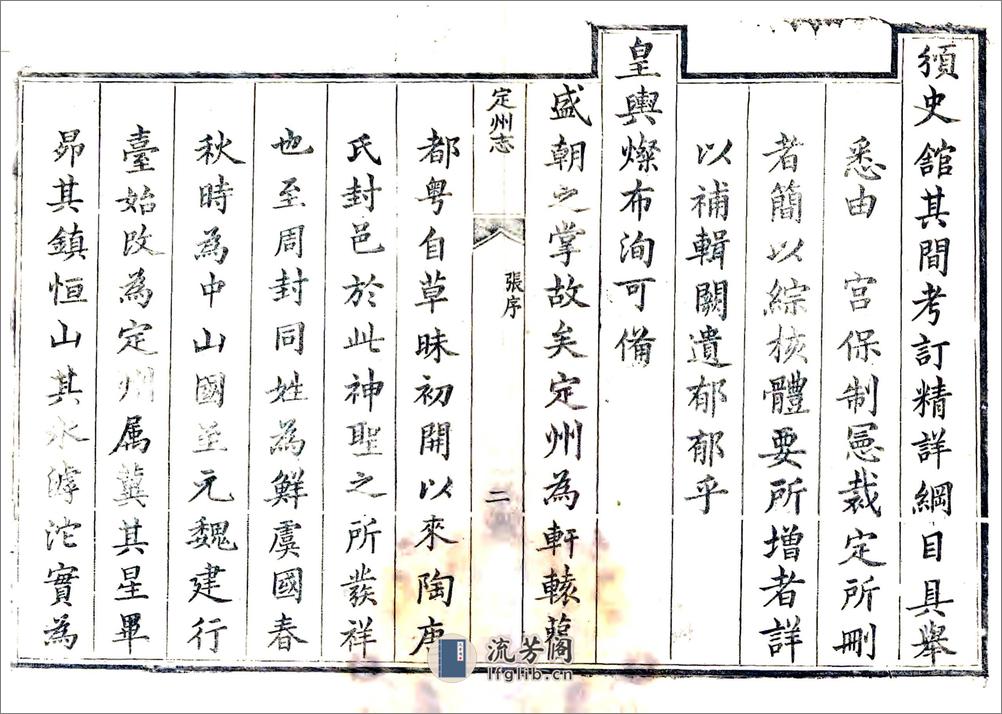 頒史館其間考訂精詳綱目具舉
悉由　宮保制憲裁定所刪
者簡以綜核體要所增者詳
以補輯闕遺郁郁乎
皇輿燦布洵可備
盛朝之掌故矣定州為軒轅舊
定州志
張序
二
都粤自草昧初開以來陶唐
氏封邑於此神聖之所發祥
也至周封同姓為鮮虞國春
秋時為中山國至元魏建行
臺始改為定州属冀其星畢
昴其鎮恒山其水滹沱實為
流芳閣
lfglib.cn